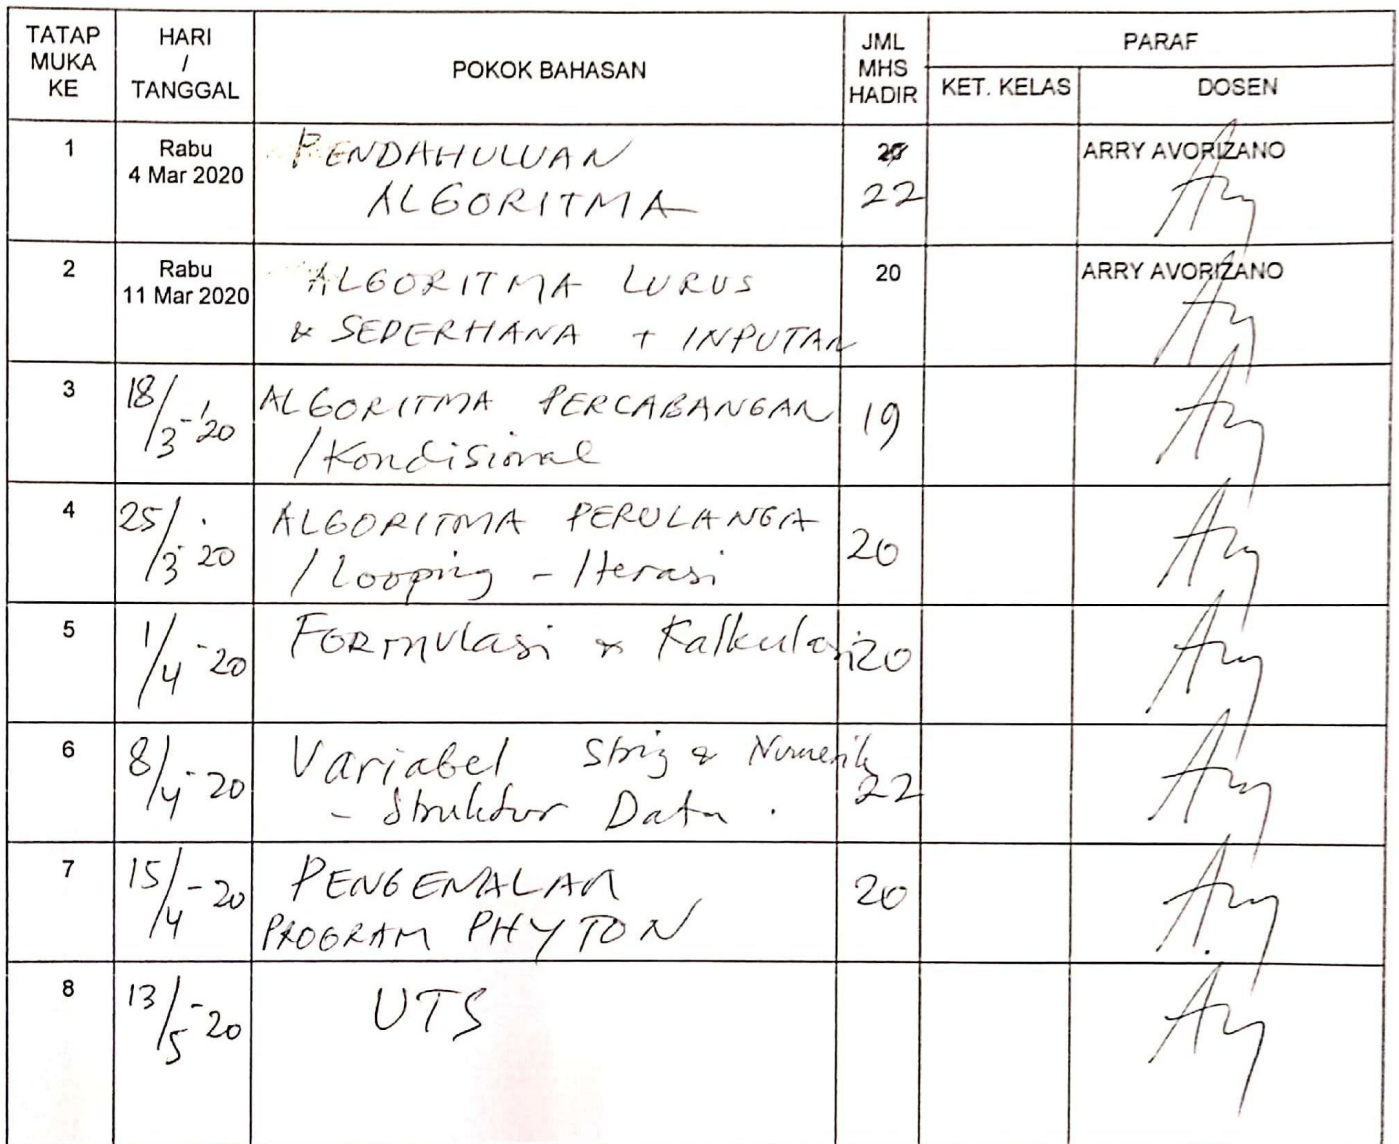 TATAP MUKA KE
HARI / TANGGAL
POKOK BAHASAN
JML MHS HADIR
PARAF
KET. KELAS
DOSEN
1
Rabu
4 Mar 2020
PENDAHULUAN
ALGORITMA
22
ARRY AVORIZANO
2
Rabu
11 Mar 2020
ALGORITMA LURUS
& SEDERHANA + INPUTAN
20
ARRY AVORIZANO
3
18/3-'20
ALGORITMA PERCABANGAN
/Kondisional
19
4
25/3-20
ALGORITMA PERULANGA
/Looping - Iterasi
20
5
1/4-20
FORMulasi & Kalkulasi
20
6
8/4-20
Variabel String & Numerik
- Struktur Data .
22
7
15/4-20
PENGENALAN
PROGRAM PHYTON
20
8
13/5-20
UTS